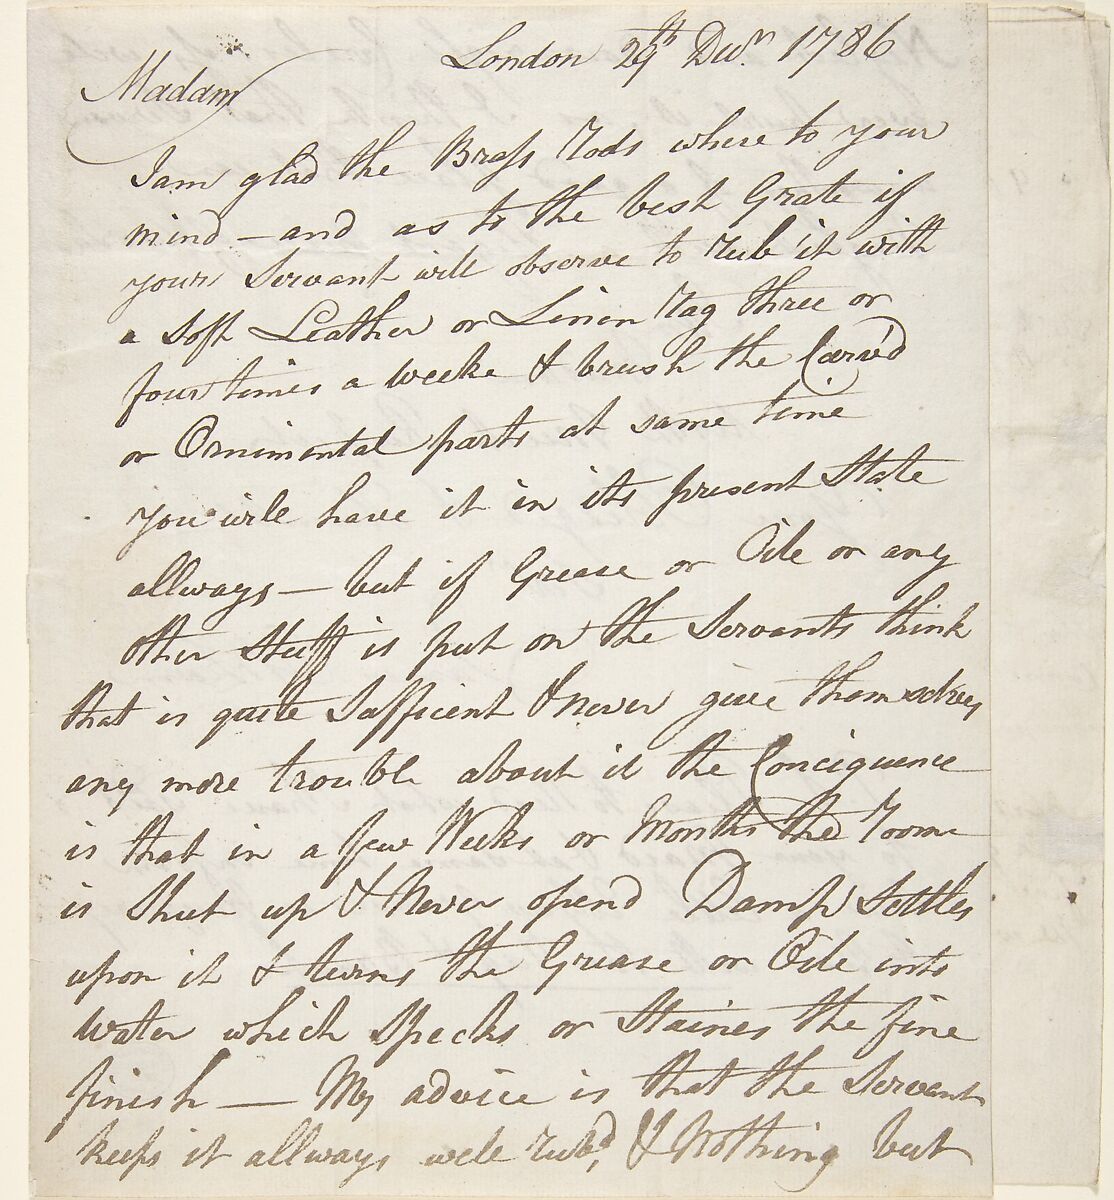 London 29th Decr. 1786
Madam
I am glad the Brass Rods where to your
mind — and as to the best Grate if
your Servant will observe to rub it with
a Soft Leather or Linin Rag three or
four times a Weeke & brush the Carv'd
or Ornimental parts at same time
you will have it in its present State
allways — but if Grease or Oile or any
other Stuff is put on the Servants think
that is quite Sufficient & never give themselves
any more trouble about it the Conciquence
is that in a few Weeks or Months the Room
is Shut up & Never opend Damp Settles
upon it & turns the Grease or Oile into
Water which Specks or Staines the fine
finish — My advice is that the Servant
keeps it allways well rub'd, & Nothing but